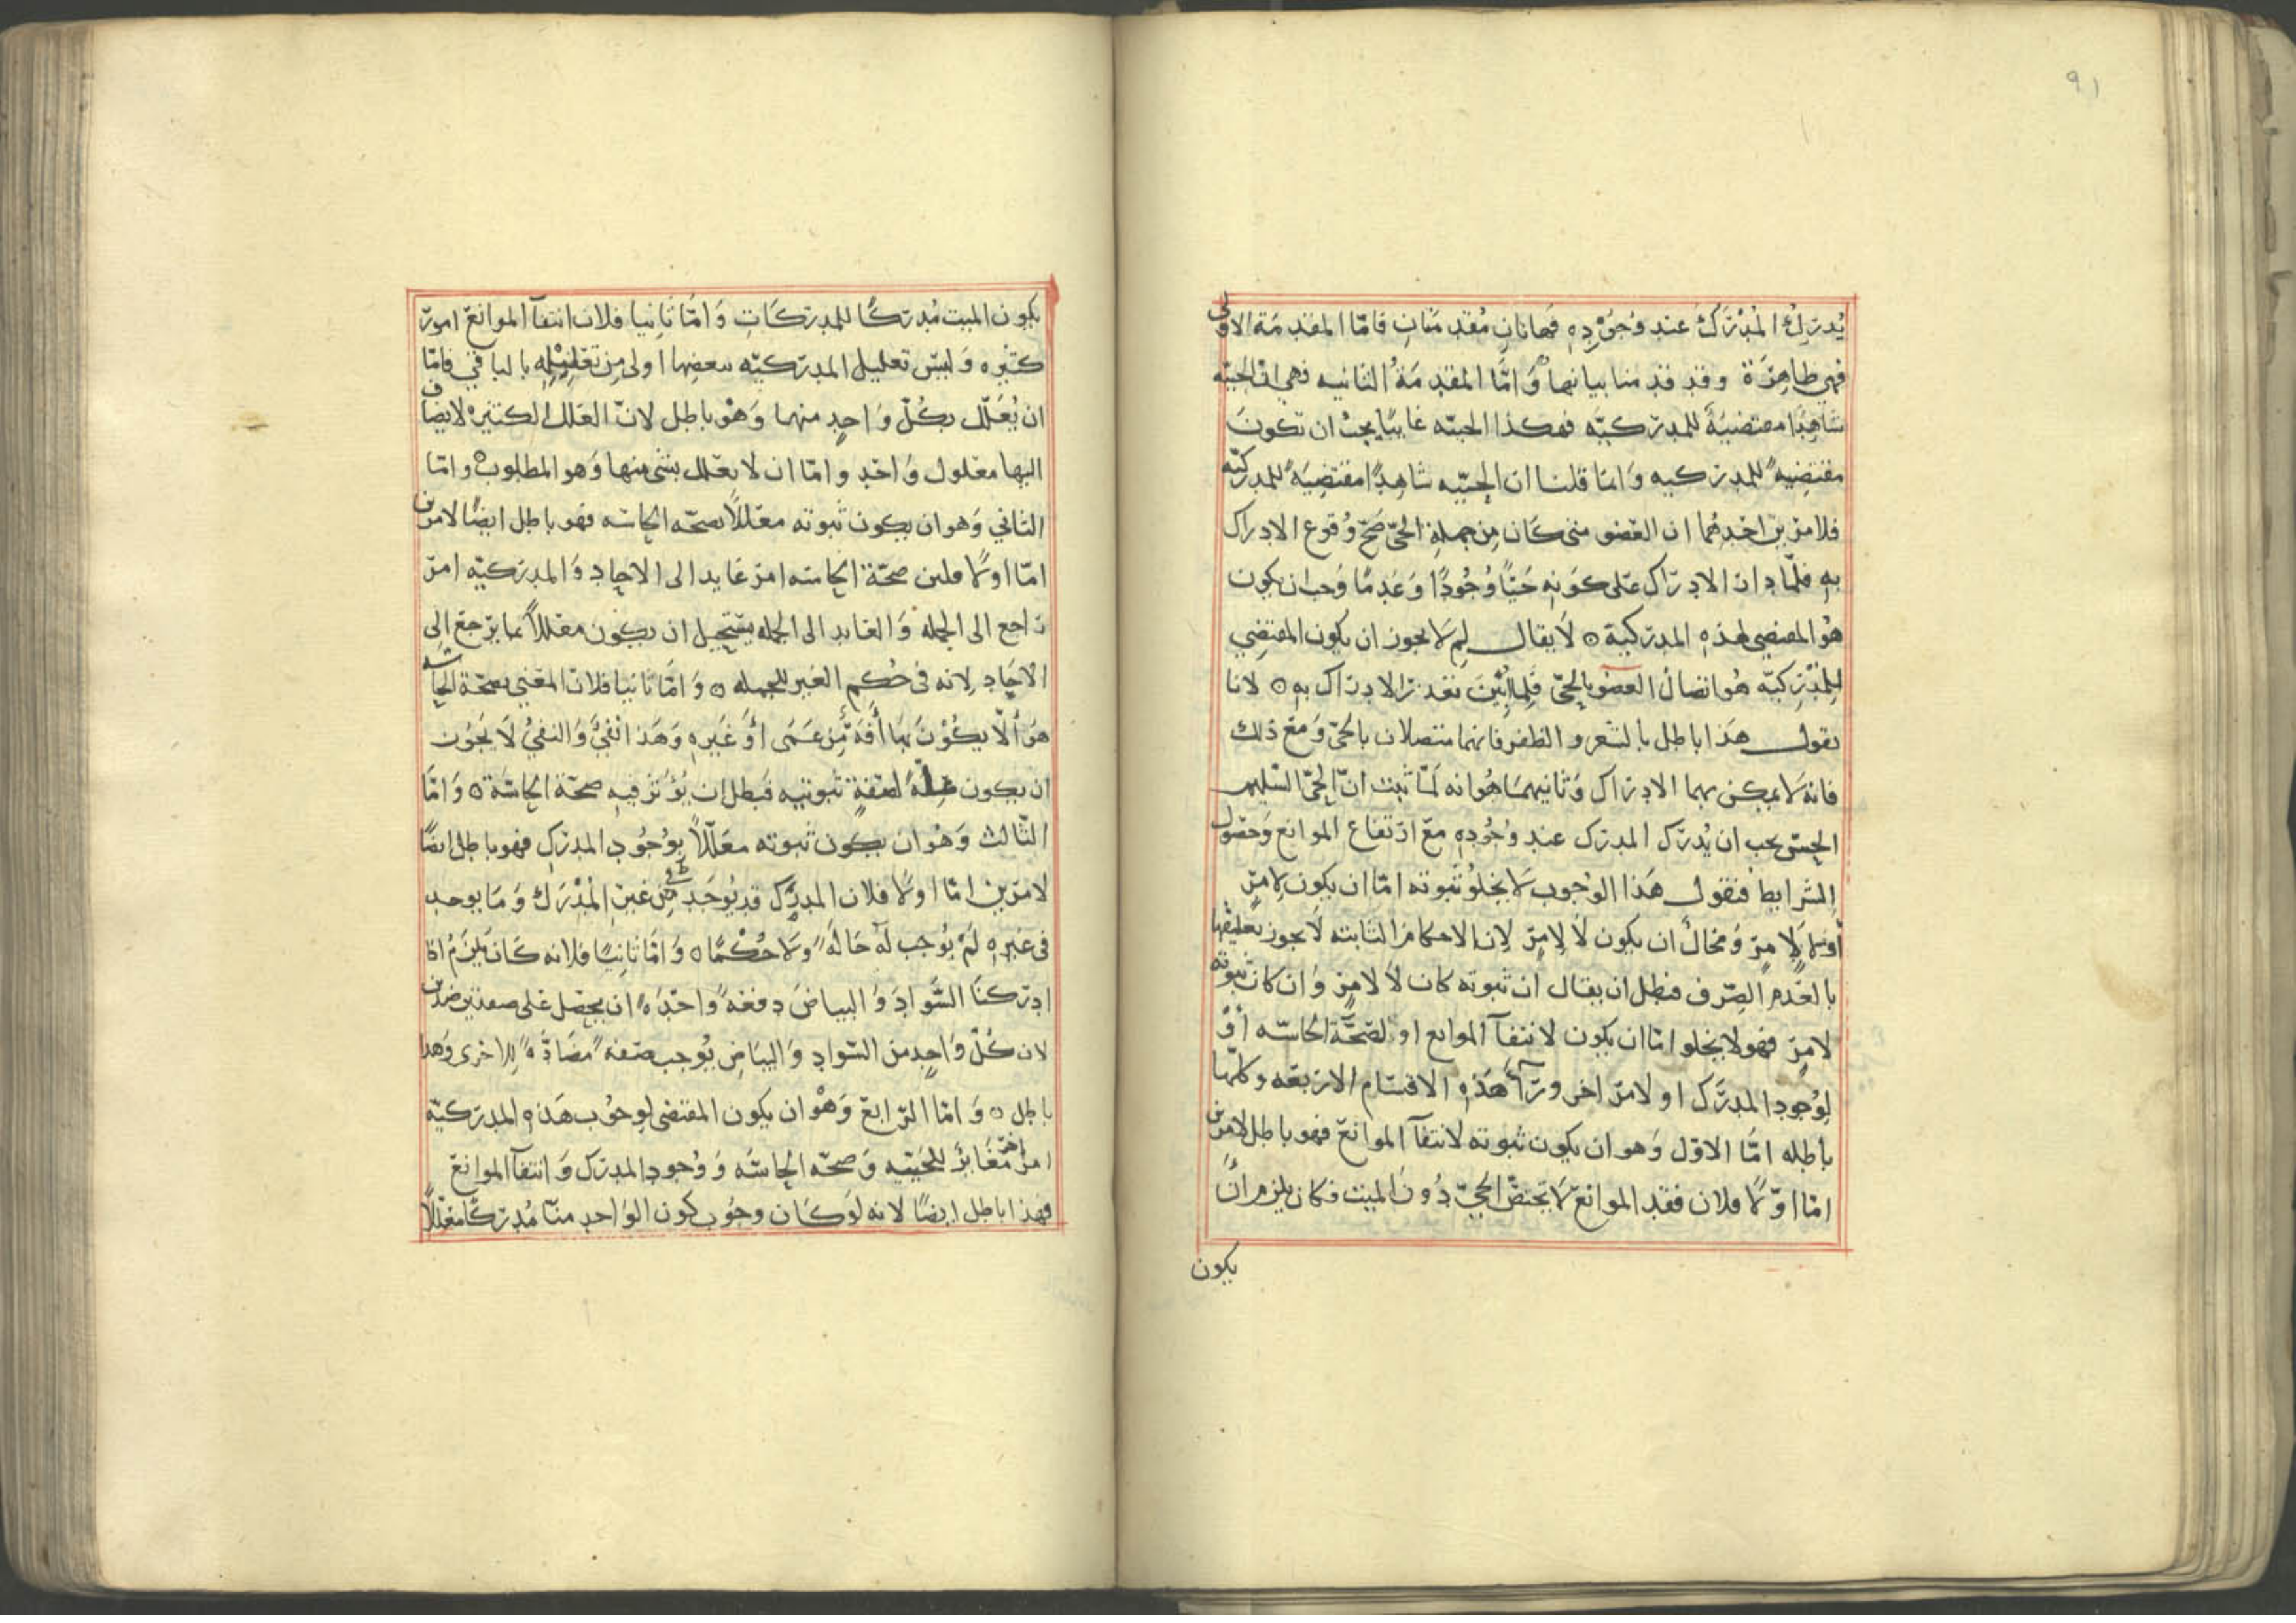 ٩١
يُدرِكُ المُدْرَكَ عند وُجُوْدِهِ فهاتانِ مُقدمتانِ فامّا المقدمة الاولى
فهي ظاهرَة وقد قدمنا بيانها وَامّا المقدمَةُ الثانيه فهي انّ الحيّيّه
شَاهِدًا مقتضيَةً للمدرَكيّه فهكذا الحييّه غايبًا يجبُ ان تكونَ
مقتضيهً للمدركيه وَانما قلنا ان الحييّه شاهدًا مقتضِيَةً للمدركيّه
فلامرين احَدِهُما ان العضو متى كَان مِن جملةِ الحيّ صَحّ وُقوع الادراك
بهِ فلمّا دار الادرَاك عَلى كَونهِ حَيًّا وُجُودًا وَعَدمًا وَجب ان يكون
هُوَ المقتضي لهذهِ المدركية ٥ لَا يقال لِم لَا يجوز ان يكون المقتضِي
لِلمُدْرِكيّه هُو اتصالُ العضوِ بالحيّ فَلِمَا أُبِيْنَ تعَذرَ الادرَاك بهِ ٥ لانا
نقول هَذا باطل بالشعر والظفر فانهما متصلان بالحيّ وَمعَ ذلك
فانهُ لَا يمكن بهما الادرَاك وَثانيهمَا هُو انه لَمّا ثبت انّ الحيّ السّليم
الحِسّ يجب ان يُدرَك المدرَك عند وُجُودِهِ معَ ارْتفاع الموانع وَحصُول
الشرايط فنقول هَذا الوُجوب لَا يخلُو ثبوته امّا ان يكون لِامرٍ
أوْ لَا لِامرٍ وَمُحالٌ ان يكون لَا لِامرٍ لِان الاحكامَ الثابته لَا يجوز تعليقها
بالعَدمِ الصِّرف فبطل ان يقال ان ثبوته كان لَا لامرٍ وَان كان ثبوته
لامرٍ فهو لا يخلوا امّا ان يكون لانتفآ الموانع او لصحَّة الحاسّه أوْ
لِوُجودِ المدرَك او لامرٍ اخر ورَآءَ هَذهِ الاقسَام الاربعَه وكلها
باطله امّا الاوّل وَهو ان يكون ثبوته لانتفآ الموانعِ فهو باطل لامرين
امّا اوّلًا فلان فقد الموانعِ لَا يختصّ الحيّ دُونَ الميت فكان يلزم أنْ
يكون
يكون الميت مُدرِكًا للمدرَكَاتِ وَامّا ثانيا فلان انتفآ الموانعِ امورٌ
كثيره وَليسَ تعليل المدرَكيّه ببعضِها اولى مِن تعليلِه بالباقي فامّا
ان يُعَلّل بكُلّ وَاحِدٍ منهما وَهْو باطل لانّ العلل الكثيره لا يضاف
اليها معلول وَاحدٍ وامّا ان لا يعَلل بشي منها وَهو المطلوب وامّا
الثاني وَهو ان يكون ثبوته معَلّلًا بصحّه الحاسّه فهو باطل ايضًا لامرين
امّا اوّلًا فلِان صحّة الحاسّه امرٌ عَايد الى الاحادِ وَالمدرَكيّه امرٌ
رَاجع الى الجملهِ وَالعَايد الى الجمله يَستحِيل ان يكون معَللًا بما يَرجعُ الى
الاحَادِ لِانه في حُكمِ الغير للجمله ٥ وَامَّا ثانيا فلان المعَني بصحَّة الحاسّه
هو ألّا يكُوْنَ بهَا أَفَةٌ مِّن عَمَى أَوْ غَيرِهِ وَهَذا نفيٌ وَالنفيُ لَا يجُوز
ان يكون عِلّةً لصِفةٍ ثبوتيه فبَطل ان يُؤثرَ فيهِ صحّة الحاسّة ٥ وَامّا
الثّالث وَهُو ان يكون ثبوته معَلّلًا بِوُجُودِ المدرَكِ فهو باطل ايضًا
لامرين امّا اوّلا فلان المدرَك قد يُوجَد مِن غيرِ المُدْرِك وَمَا يوجد
في غيرِهِ لَمْ يُوجب لَهُ حَالةً وَلَا حُكْمًا ٥ وَامّا ثانيًا فلانه كَان يَلزَمُ اذا
ادرَكنَا السَّوادَ وَالبياضَ دفعَهً وَاحدَهً ان يحصل على صفتين ضدين
لان كُلّ وَاحِدٍ من السّوادِ وَالبيَاضِ يُوجب صفهً مضادّهً لِلاخرى وَهذا
باطل ٥ وَامّا الرَّابعِ وَهْو ان يكون المقتضي لِوجُوب هَذهِ المدرَكيّة
امر اخر مغَايرٌ للحَييّهِ وَصحّه الحاسّه وَوُجودِ المدرَك وَانتفآ الموانعِ
فهذا باطل ايضًا لانه لَو كَان وجُوب كون الوَاحدِ منّا مُدرِكًا معَلّلًا